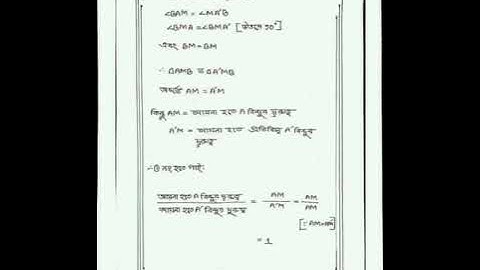 ∠BAM = ∠MA'B
∠BMA = ∠BMA' [উভয়ে 90°]
এবং BM = BM
∴ ΔAMB ≅ ΔA'MB
অর্থাৎ AM = A'M
কিন্তু AM = আয়না হতে A বিন্দুর দূরত্ব
A'M = আয়না হতে প্রতিবিম্ব A' বিন্দুর
দূরত্ব
নং হতে পাই,
আয়না হতে A বিন্দুর দূরত্ব / আয়না হতে A' বিন্দুর দূরত্ব = AM / A'M = AM / AM
[∵ AM=A'M]
= 1